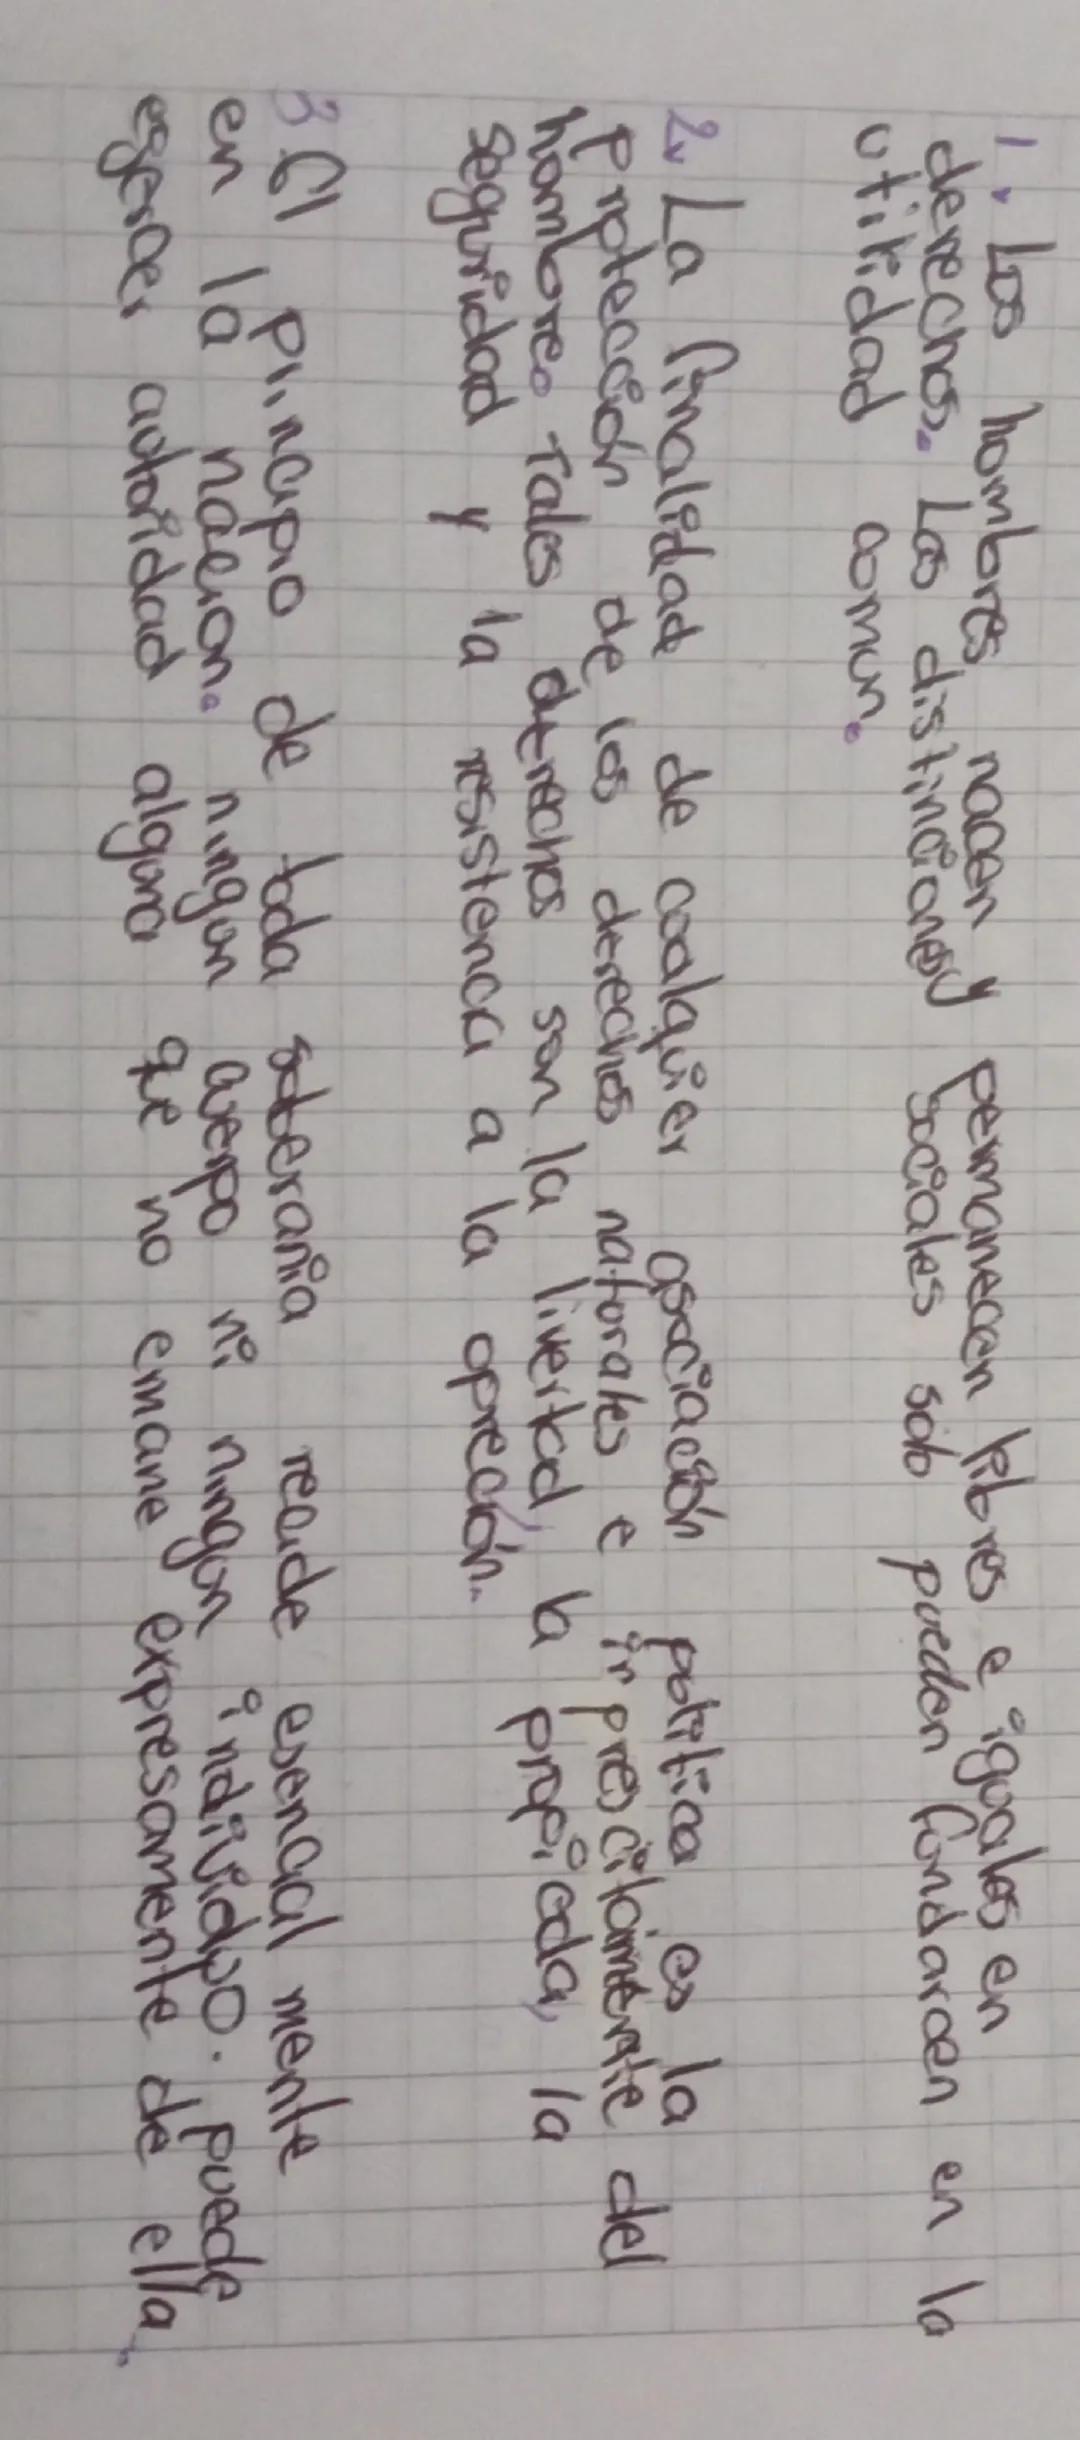 1. Los hombres nacen y permanecen libres e iguales en
derechos. Los distinciones sociales sólo pueden fundarcen en la
utilidad comun.
2. La finalidad de cualquier asociación politica es la
protección de los derechos naturales e inprescitamente del
hombre. Tales derechos son la livertad, la propiedad, la
seguridad y la resistencia a la opreción.
3. El principio de toda soberania reside esencial mente
en la nacion. ningun cuerpo ni ningun individuo. puede
egercer autoridad alguna que no emane expresamente de ella.